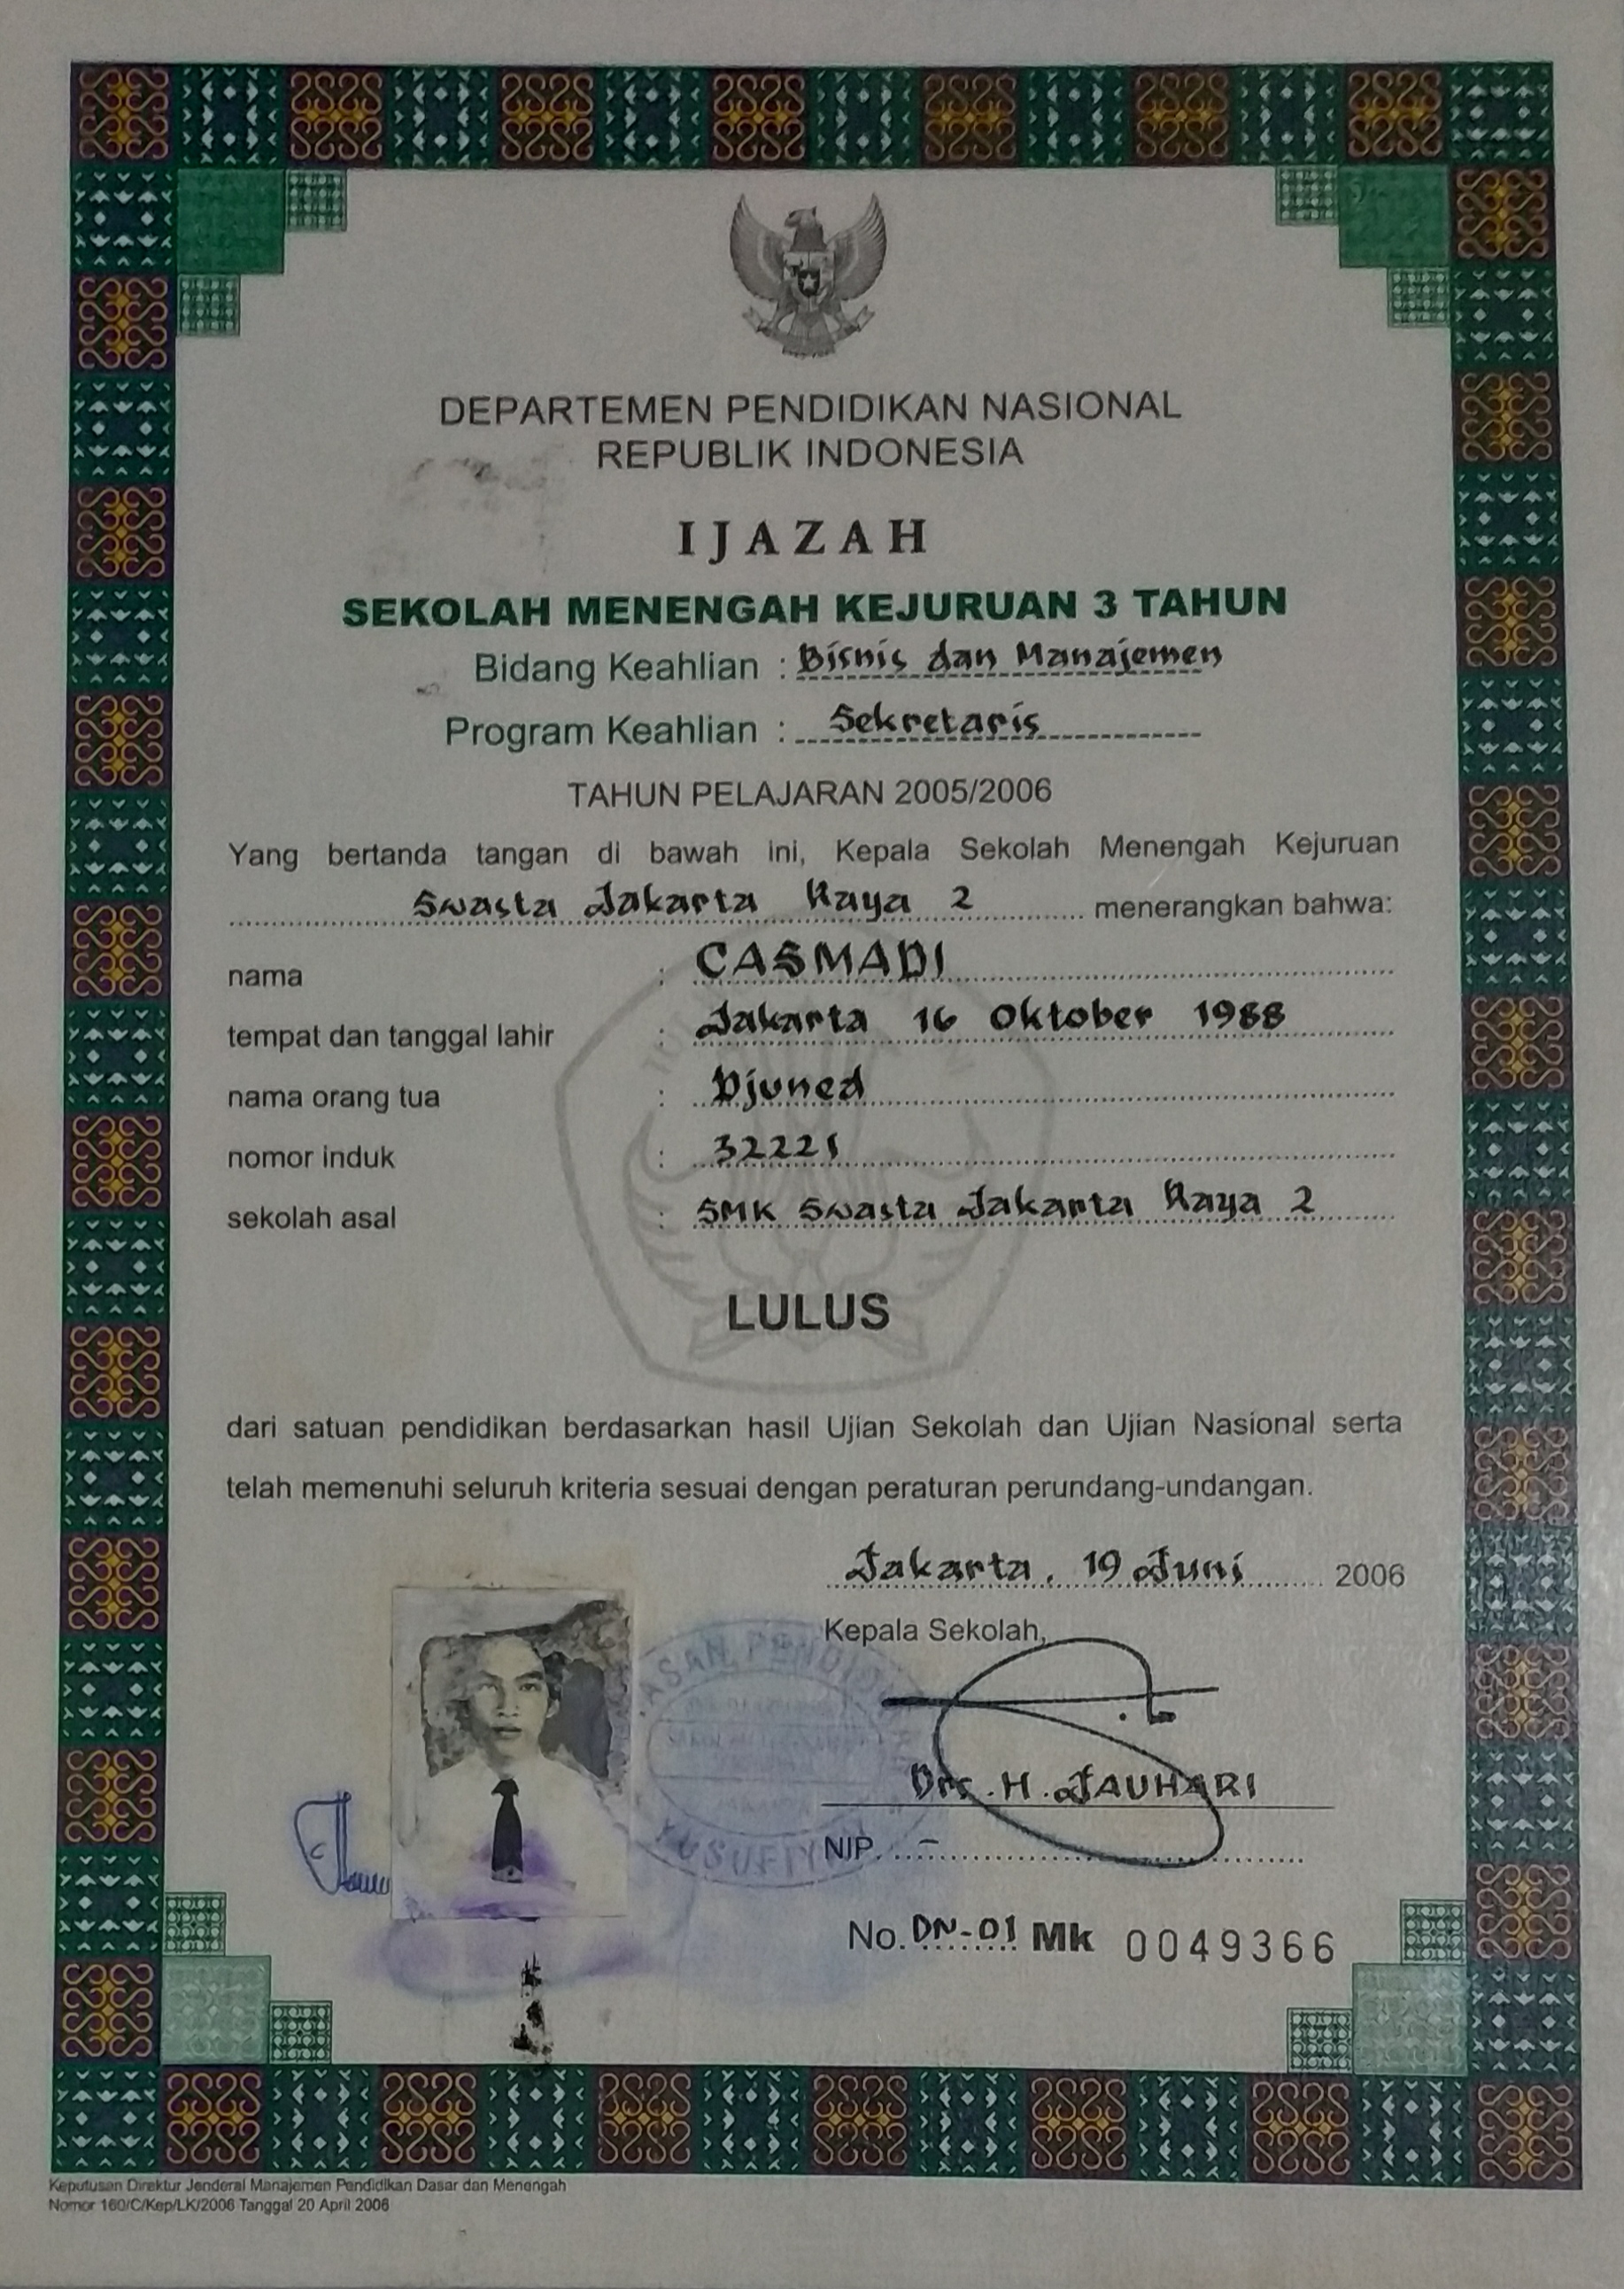 DEPARTEMEN PENDIDIKAN NASIONAL
REPUBLIK INDONESIA
IJAZAH
SEKOLAH MENENGAH KEJURUAN 3 TAHUN
Bidang Keahlian : Bisnis dan Manajemen
Program Keahlian : Sekretaris
TAHUN PELAJARAN 2005/2006
Yang bertanda tangan di bawah ini, Kepala Sekolah Menengah Kejuruan
Swasta Jakarta Raya 2 menerangkan bahwa:
nama : CASMADI
tempat dan tanggal lahir : Jakarta 16 Oktober 1988
nama orang tua : Djuned
nomor induk : 32221
sekolah asal : SMK Swasta Jakarta Raya 2
LULUS
dari satuan pendidikan berdasarkan hasil Ujian Sekolah dan Ujian Nasional serta
telah memenuhi seluruh kriteria sesuai dengan peraturan perundang-undangan.
Jakarta, 19 Juni 2006
Kepala Sekolah,
Drs. H. JAUHARI
NIP. -
No. DN-01 Mk 0049366
Keputusan Direktur Jenderal Manajemen Pendidikan Dasar dan Menengah
Nomor 160/C/Kep/LK/2006 Tanggal 20 April 2006